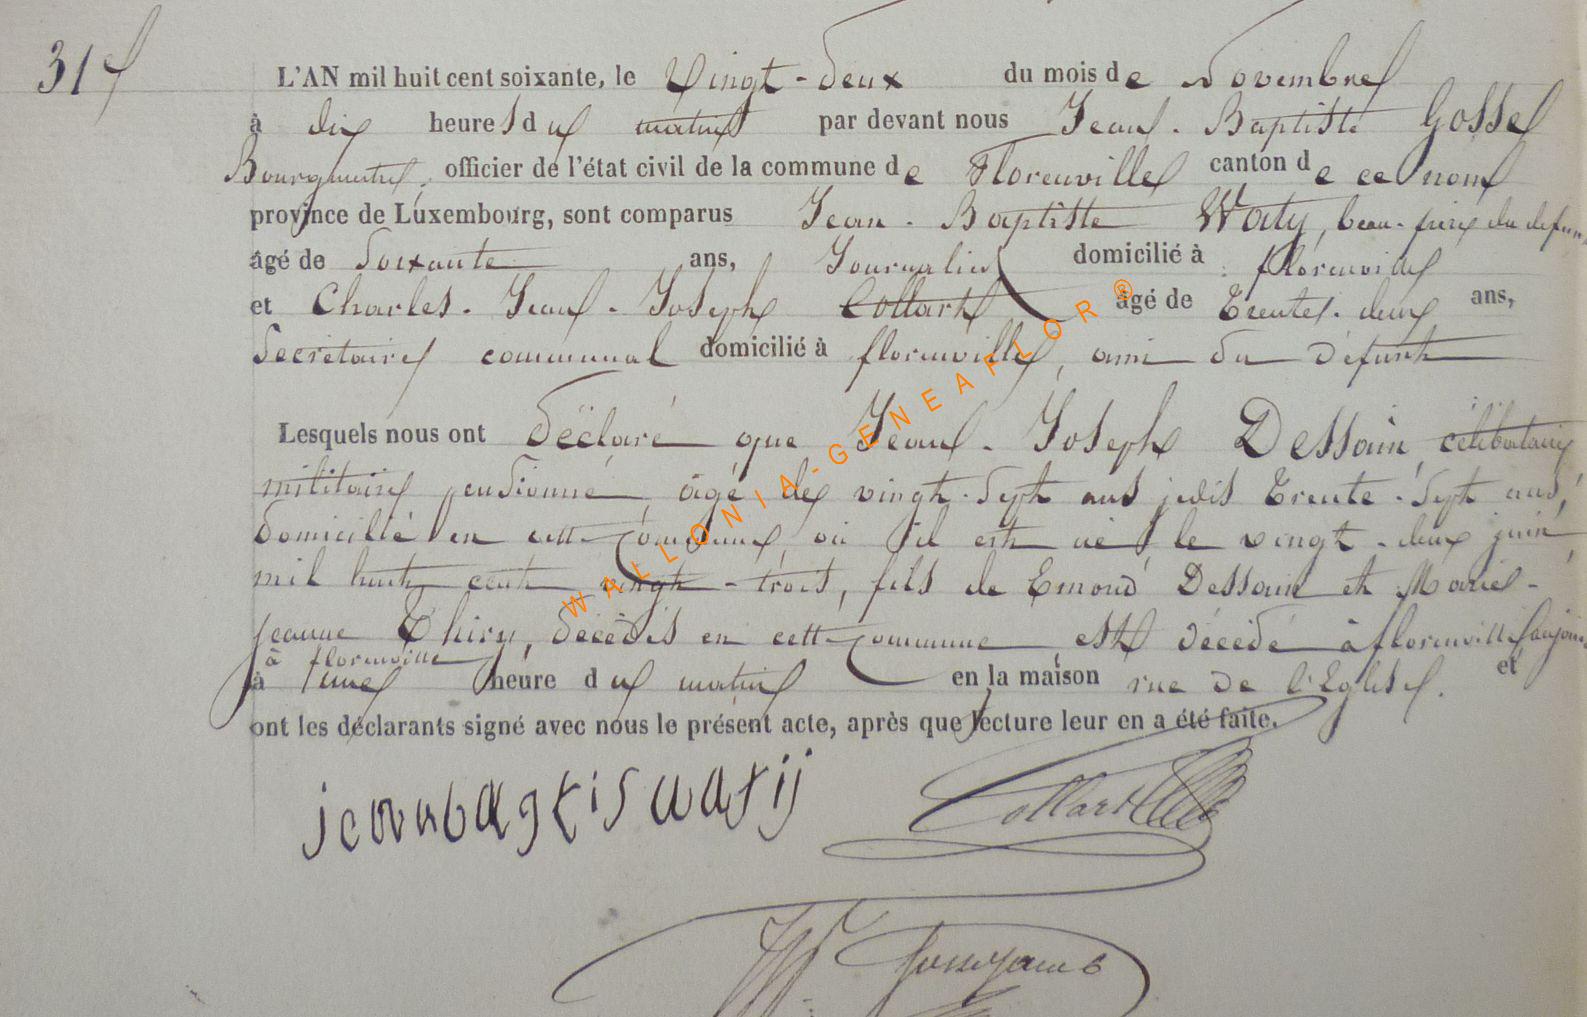 31
L'AN mil huit cent soixante, le Vingt-deux du mois de Novembre
à dix heures du matin par devant nous Jean-Baptiste Gosse
Bourgmestre, officier de l'état civil de la commune de Florenville canton de ce nom
province de Luxembourg, sont comparus Jean-Baptiste Waty, beau-frère du défunt
âgé de Soixante ans, Journalier domicilié à florenville
et Charles-Jean-Joseph Collart âgé de Trente-deux ans,
Secrétaire communal domicilié à florenville, ami du défunt
Lesquels nous ont déclaré que Jean-Joseph Dessoin, célibataire
militaire pensionné, âgé de vingt-sept ans jadis Trente-sept ans,
domicilié en cette commune, où il est né le vingt-deux juin
mil huit cent vingt-trois, fils de Emond Dessoin et Marie-
jeanne Thiry, décédés en cette commune est décédé à florenville
à florenville
à une heure du matin en la maison rue de l'Eglise. et
ont les déclarants signé avec nous le présent acte, après que lecture leur en a été faite.
WALLONIA-GENEAFLOR®
jean baptis watij
Collart